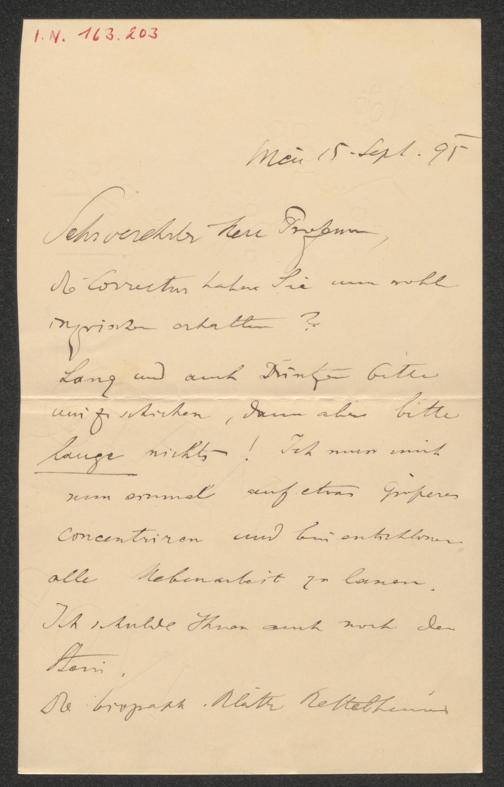 I.N. 163.203
Wien 15. Sept. 95
Sehrverehrter Herr Professor,
die Correctur haben Sie nun wohl
inzwischen erhalten?
Lang und auch Düntzer bitte
mir zu schicken, dann aber bitte
lange nichts! Ich muss mich
nun einmal auf etwas Grösseres
concentriren und bin entschlossen
alle Nebenarbeit zu lassen.
Ich schulde Ihnen auch noch den
Die biograph. Blätter Bettelheims